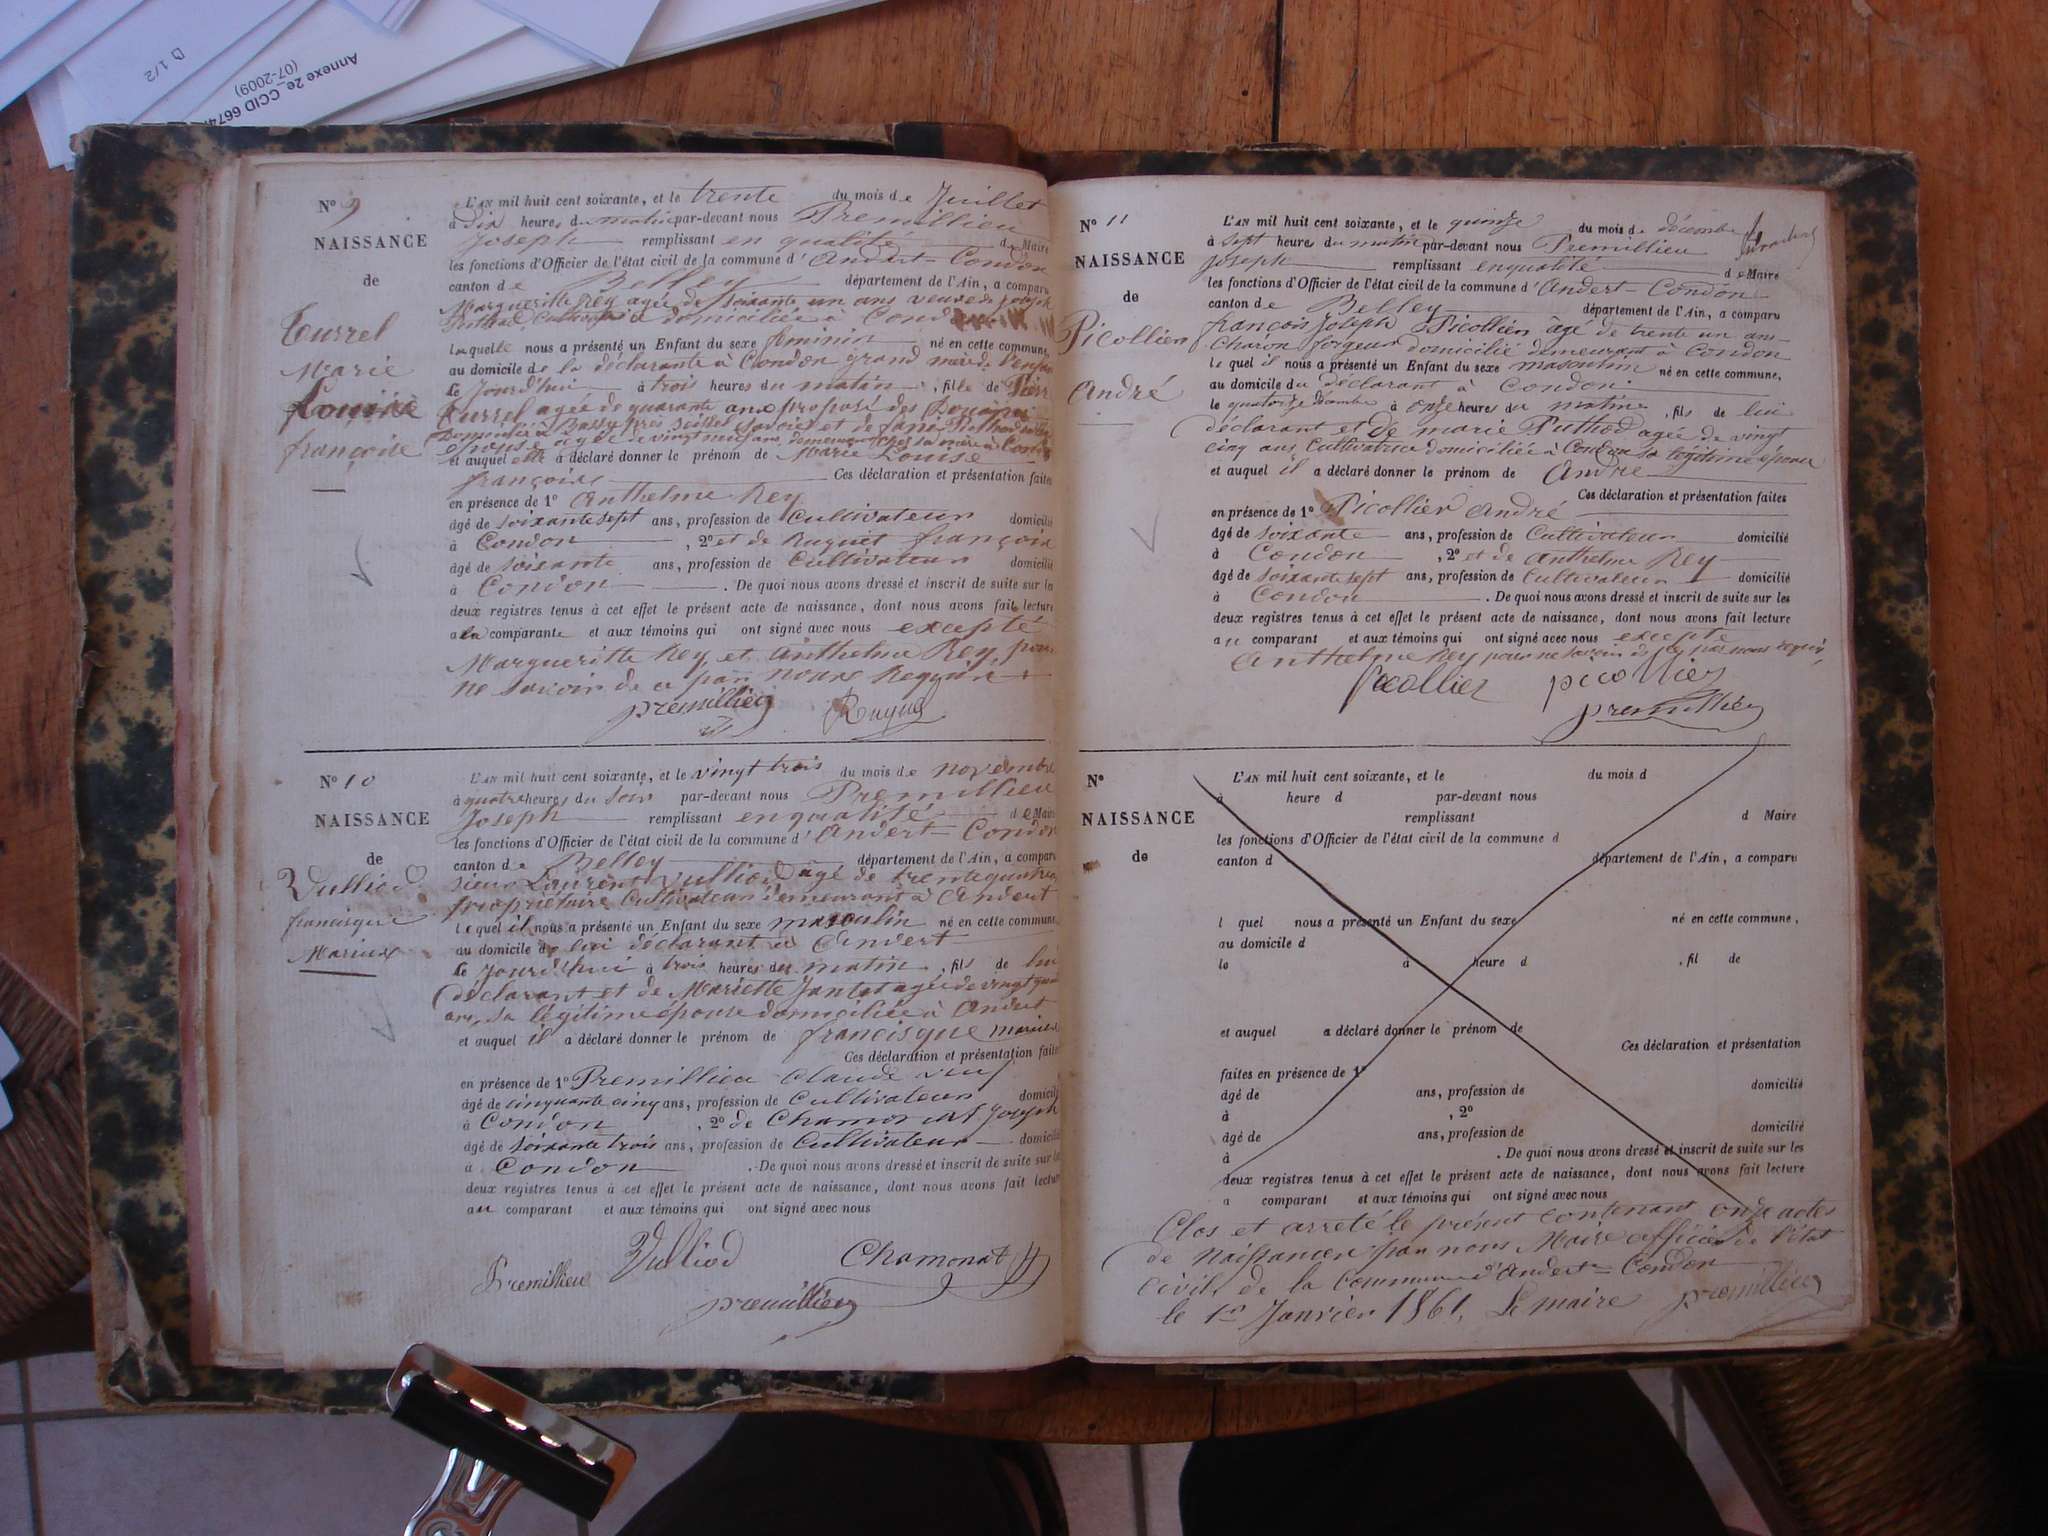 D 1/2
Annexe 2e_CCID 6674
(07-2009)
N° 9
NAISSANCE
de
Turrel
Marie
Louise
françoise
L'AN mil huit cent soixante, et le trente du mois de Juillet
à Dix heures du matin par-devant nous Premillieu
Joseph remplissant en qualité de Maire
les fonctions d'Officier de l'état civil de la commune d'Andert-Condon
canton de Belley département de l'Ain, a comparu
Margueritte Rey agée de soixante un ans veuve de joseph
Puthod Cultivatrice domiciliée à Condon
laquelle nous a présenté un Enfant du sexe féminin né en cette commune,
au domicile de la déclarante à Condon grand mère de l'enfant
le Jourd'hui à trois heures du matin, fille de Pierre
Turrel agée de quarante ans préposé des Douanes
épouse agée de vingt neuf ans, demeurant chez sa mère à Condon
et auquel elle a déclaré donner le prénom de Marie Louise
françoise Ces déclaration et présentation faites
en présence de 1° Anthelme Rey
âgé de soixante sept ans, profession de Cultivateur domicilié
à Condon, 2° et de Ruguet françois
âgé de soixante ans, profession de Cultivateur domicilié
à Condon. De quoi nous avons dressé et inscrit de suite sur les
deux registres tenus à cet effet le présent acte de naissance, dont nous avons fait lecture
a la comparante et aux témoins qui ont signé avec nous excepté
Margueritte Rey et Anthelme Rey, pour
ne savoir de ce par nous Requis
premillieu Ruguet
N° 10
NAISSANCE
de
Vulliod
francisque
Marius
L'AN mil huit cent soixante, et le vingt trois du mois de novembre
à quatre heures du soir par-devant nous Premillieu
Joseph remplissant en qualité de Maire
les fonctions d'Officier de l'état civil de la commune d'Andert-Condon
canton de Belley département de l'Ain, a comparu
sieur Laurent Vulliod âgé de trente quatre
propriétaire Cultivateur demeurant à Andert
lequel il nous a présenté un Enfant du sexe masculin né en cette commune,
au domicile de lui déclarant à Andert
le Jourd'hui à trois heures du matin, fils de lui
déclarant et de Mariette Jantet agée de vingt quatre
ans, sa légitime épouse domiciliée à Andert
et auquel il a déclaré donner le prénom de francisque marius
Ces déclaration et présentation faites
en présence de 1° Premillieu Claude veuf
âgé de cinquante cinq ans, profession de Cultivateur domicilié
à Condon, 2° de Chamonat Joseph
âgé de soixante trois ans, profession de Cultivateur domicilié
à Condon. De quoi nous avons dressé et inscrit de suite sur les
deux registres tenus à cet effet le présent acte de naissance, dont nous avons fait lecture
au comparant et aux témoins qui ont signé avec nous
Premillieu Vulliod Chamonat
premillieu
N° 11
NAISSANCE
de
Picollier
André
L'AN mil huit cent soixante, et le quinze du mois de décembre
à sept heures du matin par-devant nous Premillieu
Joseph remplissant en qualité de Maire
les fonctions d'Officier de l'état civil de la commune d'Andert-Condon
canton de Belley département de l'Ain, a comparu
françois Joseph Picollier âgé de trente un ans
Charon forgeur domicilié demeurant à Condon
lequel il nous a présenté un Enfant du sexe masculin né en cette commune,
au domicile du déclarant à Condon
le quatorze décembre à onze heures du matin, fils de lui
déclarant et de marie Puthod agée de vingt
cinq ans Cultivatrice domiciliée à Condon sa légitime épouse
et auquel il a déclaré donner le prénom de André
Ces déclaration et présentation faites
en présence de 1° Picollier André
âgé de soixante ans, profession de Cultivateur domicilié
à Condon, 2° et de Anthelme Rey
âgé de soixante sept ans, profession de Cultivateur domicilié
à Condon. De quoi nous avons dressé et inscrit de suite sur les
deux registres tenus à cet effet le présent acte de naissance, dont nous avons fait lecture
au comparant et aux témoins qui ont signé avec nous excepté
Anthelme Rey pour ne savoir de ce par nous requis
Picollier picollier
premillieu
N°
NAISSANCE
de
L'AN mil huit cent soixante, et le du mois d
à heure d par-devant nous
remplissant d Maire
les fonctions d'Officier de l'état civil de la commune d
canton d département de l'Ain, a comparu
l quel nous a présenté un Enfant du sexe né en cette commune,
au domicile d
le à heure d , fil de
et auquel a déclaré donner le prénom de
Ces déclaration et présentation
faites en présence de 1°
âgé de ans, profession de domicilié
à , 2°
âgé de ans, profession de domicilié
à . De quoi nous avons dressé et inscrit de suite sur les
deux registres tenus à cet effet le présent acte de naissance, dont nous avons fait lecture
a comparant et aux témoins qui ont signé avec nous
Clos et arreté le présent contenant onze actes
de Naissances par nous Maire officier de l'état
civil de la Commune d'Andert-Condon
le 1er Janvier 1861, Le maire premillieu